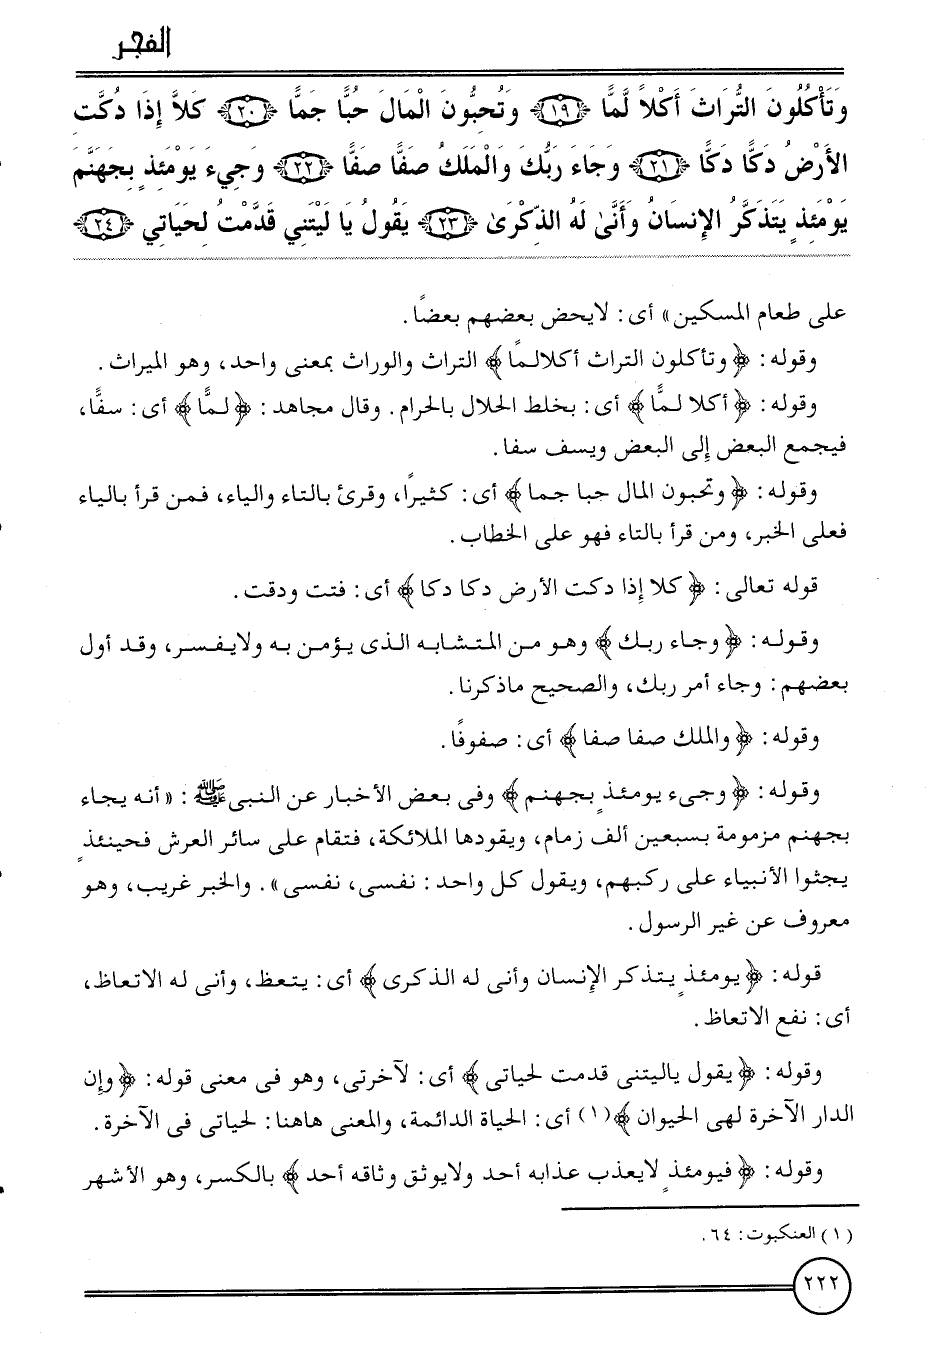 الفجر
وَتَأْكُلُونَ التُّرَاثَ أَكْلاً لَّمًّا ﴿١٩﴾ وَتُحِبُّونَ الْمَالَ حُبًّا جَمًّا ﴿٢٠﴾ كَلاَّ إِذَا دُكَّتِ
الأَرْضُ دَكًّا دَكًّا ﴿٢١﴾ وَجَاءَ رَبُّكَ وَالْمَلَكُ صَفًّا صَفًّا ﴿٢٢﴾ وَجِيءَ يَوْمَئِذٍ بِجَهَنَّمَ
يَوْمَئِذٍ يَتَذَكَّرُ الإِنسَانُ وَأَنَّىٰ لَهُ الذِّكْرَىٰ ﴿٢٣﴾ يَقُولُ يَا لَيْتَنِي قَدَّمْتُ لِحَيَاتِي ﴿٢٤﴾
على طعام المسكين» أى: لايحض بعضهم بعضاً.
وقوله: ﴿وتأكلون التراث أكلالمًا﴾ التراث والوراث بمعنى واحد، وهو الميراث.
وقوله: ﴿أكلا لمًّا﴾ أى: بخلط الحلال بالحرام. وقال مجاهد: ﴿لمًّا﴾ أى: سفًّا،
فيجمع البعض إلى البعض ويسف سفا.
وقوله: ﴿وتحبون المال حبا جما﴾ أى: كثيرًا، وقرئ بالتاء والياء، فمن قرأ بالياء
فعلى الخبر، ومن قرأ بالتاء فهو على الخطاب.
قوله تعالى: ﴿كلا إذا دكت الأرض دكا دكا﴾ أى: فتت ودقت.
وقوله: ﴿وجاء ربك﴾ وهو من المتشابه الذى يؤمن به ولايفسر، وقد أول
بعضهم: وجاء أمر ربك، والصحيح ماذكرنا.
وقوله: ﴿والملك صفا صفا﴾ أى: صفوفًا.
وقوله: ﴿وجىء يومئذٍ بجهنم﴾ وفى بعض الأخبار عن النبى ﷺ: «أنه يجاء
بجهنم مزمومة بسبعين ألف زمام، ويقودها الملائكة، فتقام على سائر العرش فحينئذٍ
يجثوا الأنبياء على ركبهم، ويقول كل واحد: نفسى، نفسى». والخبر غريب، وهو
معروف عن غير الرسول.
قوله: ﴿يومئذٍ يتذكر الإنسان وأنى له الذكرى﴾ أى: يتعظ، وأنى له الاتعاظ،
أى: نفع الاتعاظ.
وقوله: ﴿يقول ياليتنى قدمت لحياتى﴾ أى: لآخرتى، وهو فى معنى قوله: ﴿وإن
الدار الآخرة لهى الحيوان﴾(١) أى: الحياة الدائمة، والمعنى هاهنا: لحياتى فى الآخرة.
وقوله: ﴿فيومئذٍ لايعذب عذابه أحد ولايوثق وثاقه أحد﴾ بالكسر، وهو الأشهر
(١) العنكبوت: ٦٤.
٢٢٢